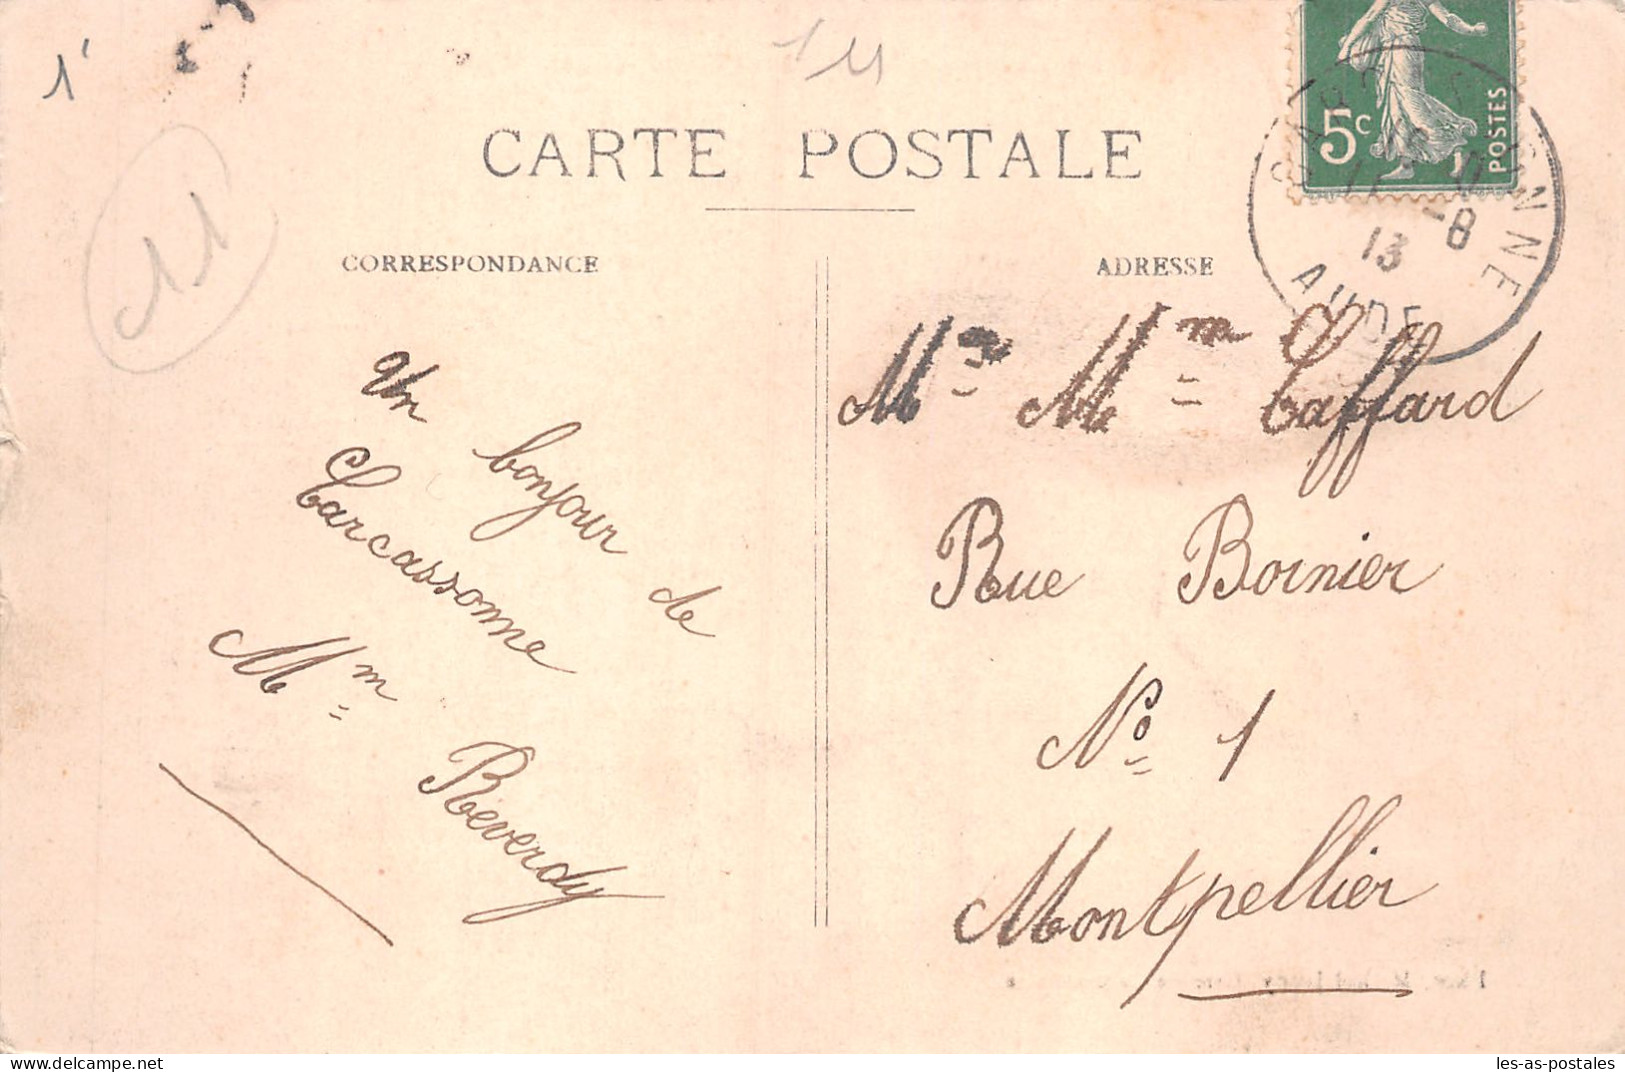 1'
14
CARTE POSTALE
5c
POSTES
CARCASSONNE
-8
13
AUDE
CORRESPONDANCE
ADRESSE
11
Un bonjour de
Carcassonne
Mm Reverdy
Mr Mm Caffard
Rue Bornier
No 1
Montpellier
www.delcampe.net
les-as-postales